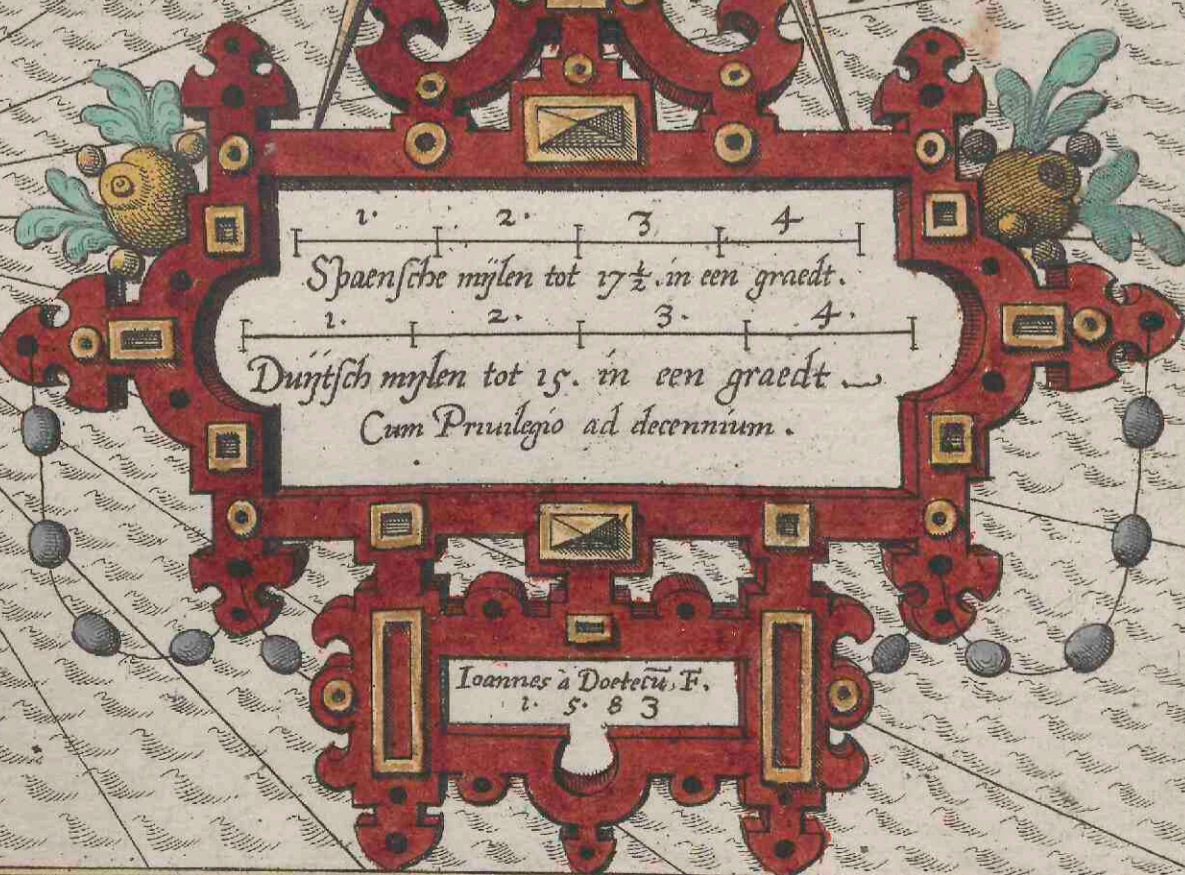 1. 2. 3 4
Spaensche mijlen tot 17 1/2. in een graedt.
1. 2. 3. 4.
Duijtsch mijlen tot 15. in een graedt
Cum Priuilegio ad decennium.
Ioannes à Doetecū, F.
1. 5. 8 3